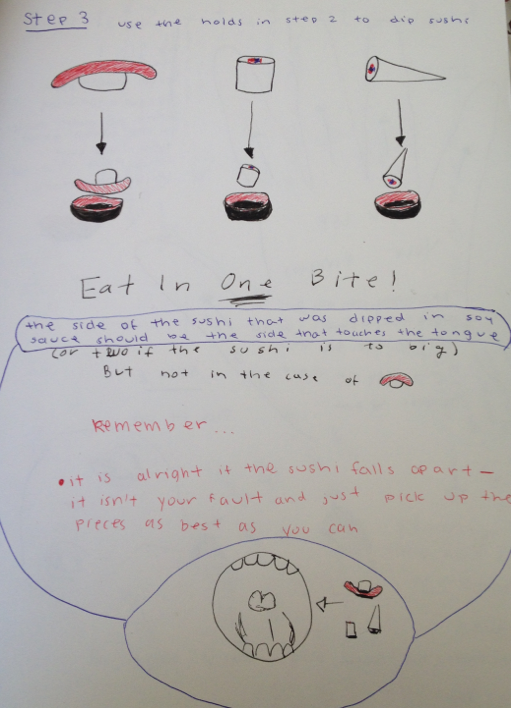 Step 3 use the holds in step 2 to dip sushi
Eat In One Bite!
the side of the sushi that was dipped in soy
sauce should be the side that touches the tongue
(or two if the sushi is to big)
But not in the case of
Remember...
• it is alright if the sushi falls apart –
it isn't your fault and just pick up the
pieces as best as you can